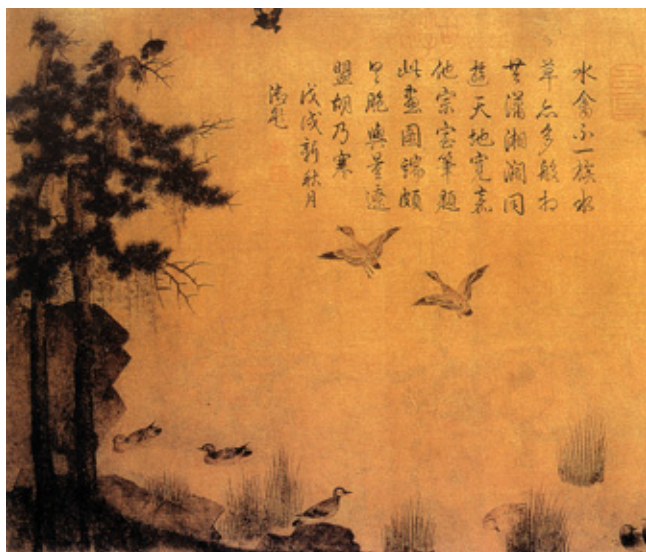 水禽不一族水
草亦多般相
共瀟湘濶同
遊天地寬嘉
他宗室筆題
此畫圖端頗
具胞與量遠
盟胡乃寒
戊戌新秋月
御題